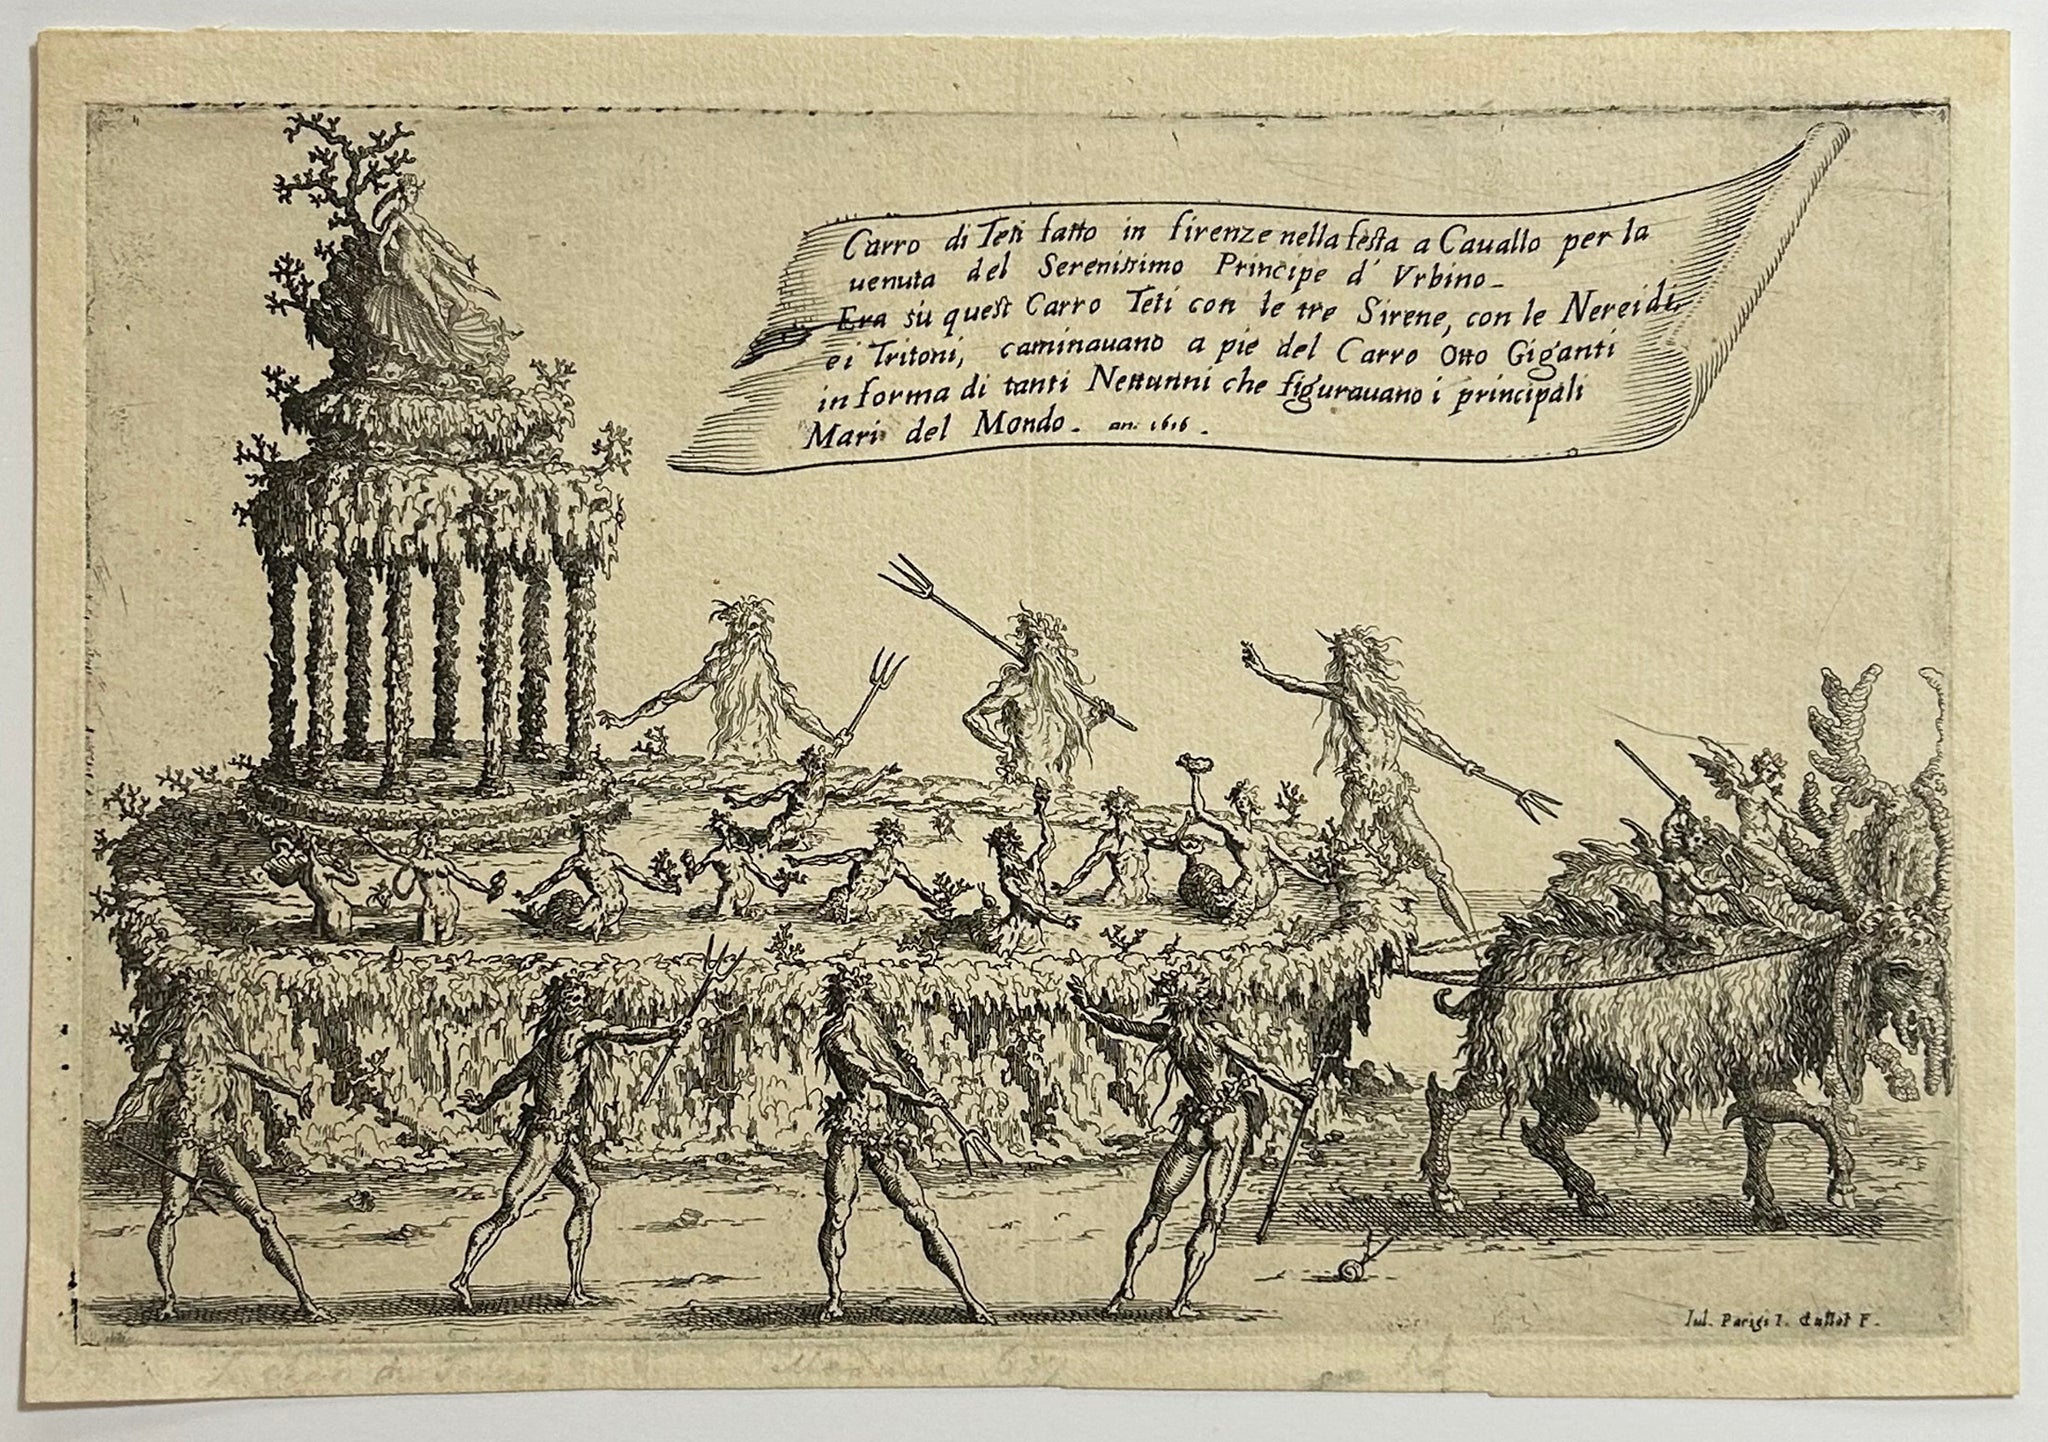 Carro di Teti fatto in firenze nella festa a Cauallo per la
uenuta del Serenissimo Principe d' Vrbino_
Era sù quest Carro Teti con le tre Sirene, con le Nereidi,
e i Tritoni, caminauano a pie del Carro Otto Giganti
in forma di tanti Nettunni che figurauano i principali
Mari del Mondo. an. 1616.
Iul. Parigi I. Callot F.